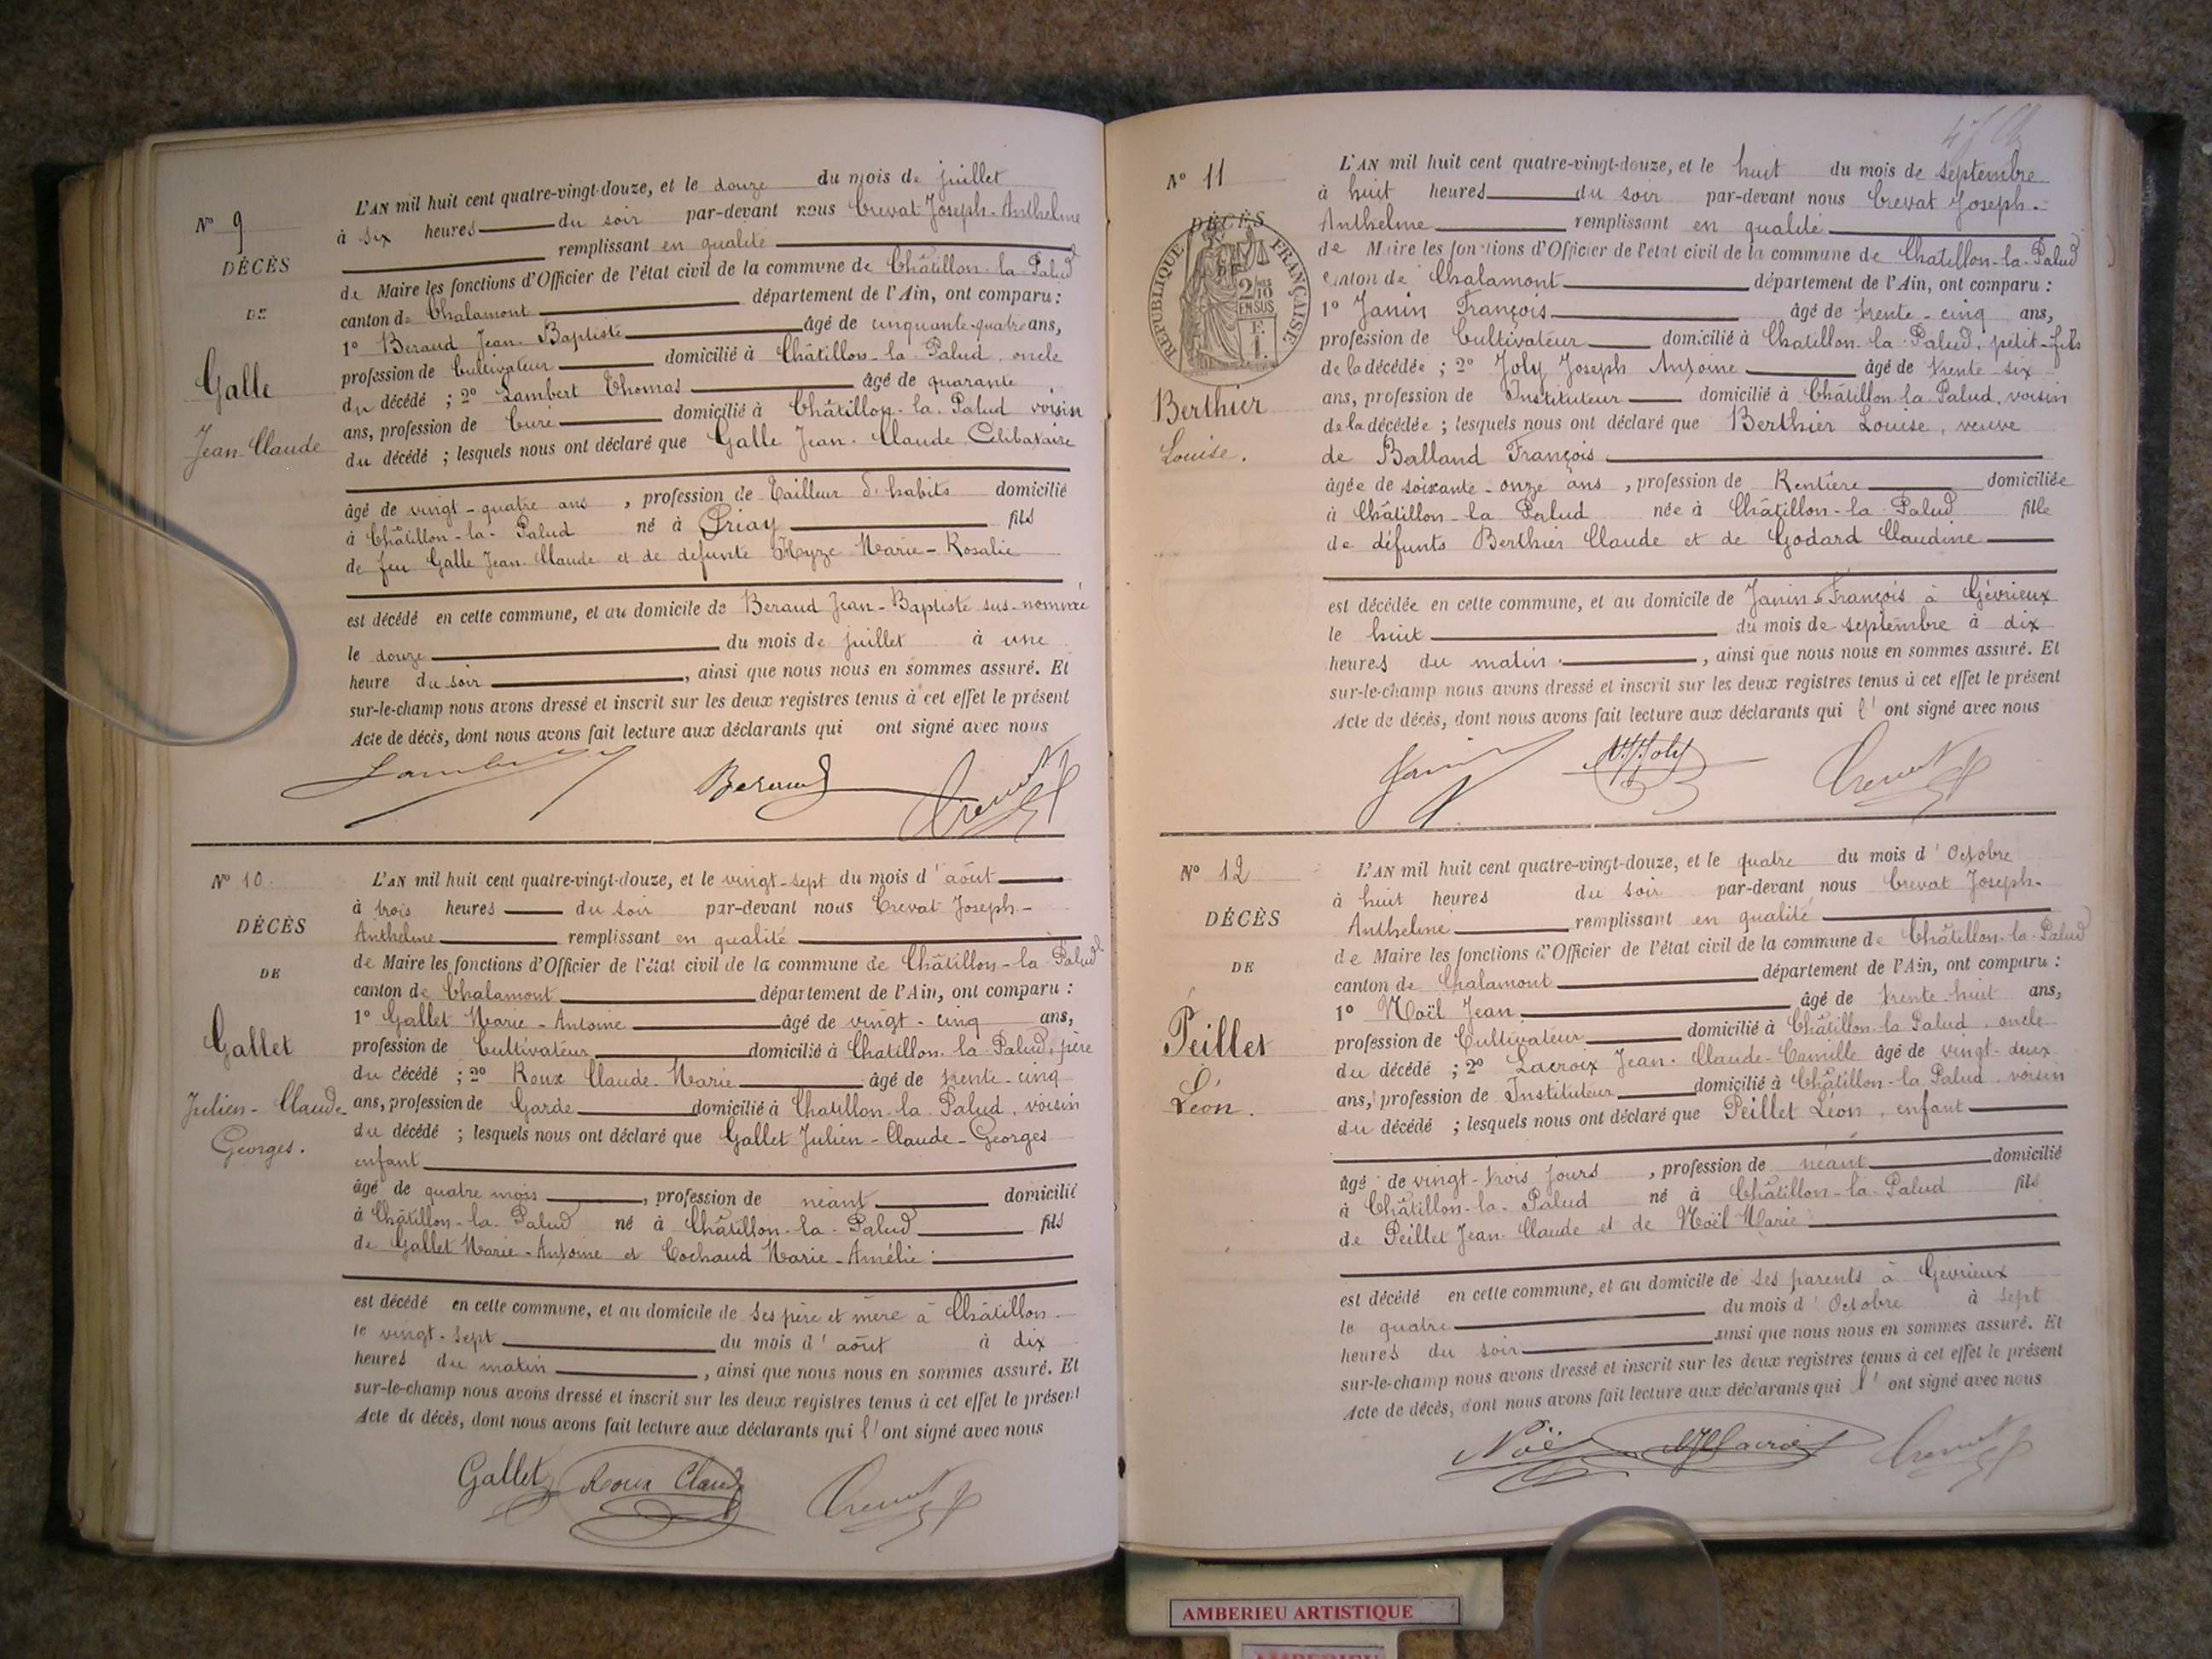 N° 9
DÉCÈS
DE
Galle
Jean-Claude
L'AN mil huit cent quatre-vingt-douze, et le douze du mois de juillet
à six heures du soir par-devant nous Crevat Joseph-Anthelme
remplissant en qualité
de Maire les fonctions d'Officier de l'état civil de la commune de Châtillon-la-Palud
canton de Chalamont département de l'Ain, ont comparu :
1° Beraud Jean-Baptiste âgé de cinquante-quatre ans,
profession de Cultivateur domicilié à Châtillon-la-Palud, oncle
du décédé ; 2° Lambert Thomas âgé de quarante
ans, profession de Curé domicilié à Châtillon-la-Palud voisin
du décédé ; lesquels nous ont déclaré que Galle Jean-Claude Célibataire
âgé de vingt-quatre ans, profession de Tailleur d'habits domicilié
à Châtillon-la-Palud né à Priay fils
de feu Galle Jean-Claude et de défunte Marie-Rosalie
est décédé en cette commune, et au domicile de Beraud Jean-Baptiste sus-nommé
le douze du mois de juillet à une
heure du soir, ainsi que nous nous en sommes assuré. Et
sur-le-champ nous avons dressé et inscrit sur les deux registres tenus à cet effet le présent
Acte de décès, dont nous avons fait lecture aux déclarants qui ont signé avec nous
Lambert Beraud Crevat
N° 10.
DÉCÈS
DE
Gallet
Julien-Claude
Georges.
L'AN mil huit cent quatre-vingt-douze, et le vingt-sept du mois d'août
à trois heures du soir par-devant nous Crevat Joseph-
Anthelme remplissant en qualité
de Maire les fonctions d'Officier de l'état civil de la commune de Châtillon-la-Palud
canton de Chalamont département de l'Ain, ont comparu :
1° Gallet Marie-Antoine âgé de vingt-cinq ans,
profession de Cultivateur domicilié à Chatillon-la-Palud, père
du décédé ; 2° Roux Claude-Marie âgé de trente-cinq
ans, profession de Garde domicilié à Chatillon-la-Palud, voisin
du décédé ; lesquels nous ont déclaré que Gallet Julien-Claude-Georges
enfant
âgé de quatre mois, profession de néant domicilié
à Châtillon-la-Palud né à Châtillon-la-Palud fils
de Gallet Marie-Antoine et Cochaud Marie-Amélie
est décédé en cette commune, et au domicile de ses père et mère à Châtillon
le vingt-sept du mois d'août à dix
heures du matin, ainsi que nous nous en sommes assuré. Et
sur-le-champ nous avons dressé et inscrit sur les deux registres tenus à cet effet le présent
Acte de décès, dont nous avons fait lecture aux déclarants qui l'ont signé avec nous
Gallet Roux Claude Crevat
N° 11
DÉCÈS
RÉPUBLIQUE FRANÇAISE
2/10
EN SUS
Berthier
Louise.
L'AN mil huit cent quatre-vingt-douze, et le huit du mois de septembre
à huit heures du soir par-devant nous Crevat Joseph-
Anthelme remplissant en qualité
de Maire les fonctions d'Officier de l'état civil de la commune de Chatillon-la-Palud
canton de Chalamont département de l'Ain, ont comparu :
1° Janin François âgé de trente-cinq ans,
profession de Cultivateur domicilié à Chatillon-la-Palud, petit-fils
de la décédée ; 2° Joly Joseph Antoine âgé de trente-six
ans, profession de Instituteur domicilié à Châtillon-la-Palud, voisin
de la décédée ; lesquels nous ont déclaré que Berthier Louise, veuve
de Balland François
âgée de soixante-onze ans, profession de Rentière domiciliée
à Châtillon-la-Palud née à Châtillon-la-Palud fille
de défunts Berthier Claude et de Godard Claudine
est décédée en cette commune, et au domicile de Janin François à Gévrieux
le huit du mois de septembre à dix
heures du matin, ainsi que nous nous en sommes assuré. Et
sur-le-champ nous avons dressé et inscrit sur les deux registres tenus à cet effet le présent
Acte de décès, dont nous avons fait lecture aux déclarants qui l'ont signé avec nous
Janin Joly Crevat
N° 12
DÉCÈS
DE
Peillet
Léon.
L'AN mil huit cent quatre-vingt-douze, et le quatre du mois d'Octobre
à huit heures du soir par-devant nous Crevat Joseph-
Anthelme remplissant en qualité
de Maire les fonctions d'Officier de l'état civil de la commune de Châtillon-la-Palud
canton de Chalamont département de l'Ain, ont comparu :
1° Noël Jean âgé de trente-huit ans,
profession de Cultivateur domicilié à Châtillon-la-Palud, oncle
du décédé ; 2° Lacroix Jean-Claude-Camille âgé de vingt-deux
ans, profession de Instituteur domicilié à Châtillon-la-Palud, voisin
du décédé ; lesquels nous ont déclaré que Peillet Léon, enfant
âgé de vingt-trois jours, profession de néant domicilié
à Châtillon-la-Palud né à Châtillon-la-Palud fils
de Peillet Jean-Claude et de Noël Marie
est décédé en cette commune, et au domicile de ses parents à Gévrieux
le quatre du mois d'Octobre à sept
heures du soir ainsi que nous nous en sommes assuré. Et
sur-le-champ nous avons dressé et inscrit sur les deux registres tenus à cet effet le présent
Acte de décès, dont nous avons fait lecture aux déclarants qui l'ont signé avec nous
Noël Lacroix Crevat
AMBERIEU ARTISTIQUE
AMBERIEU